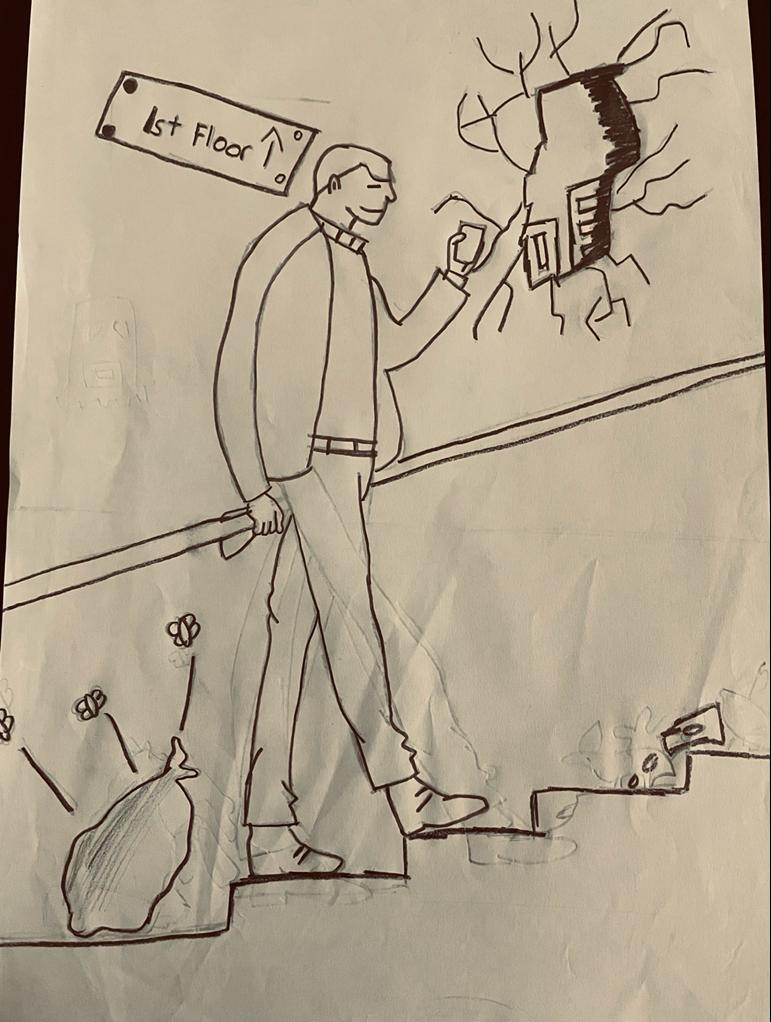 1st Floor ↑